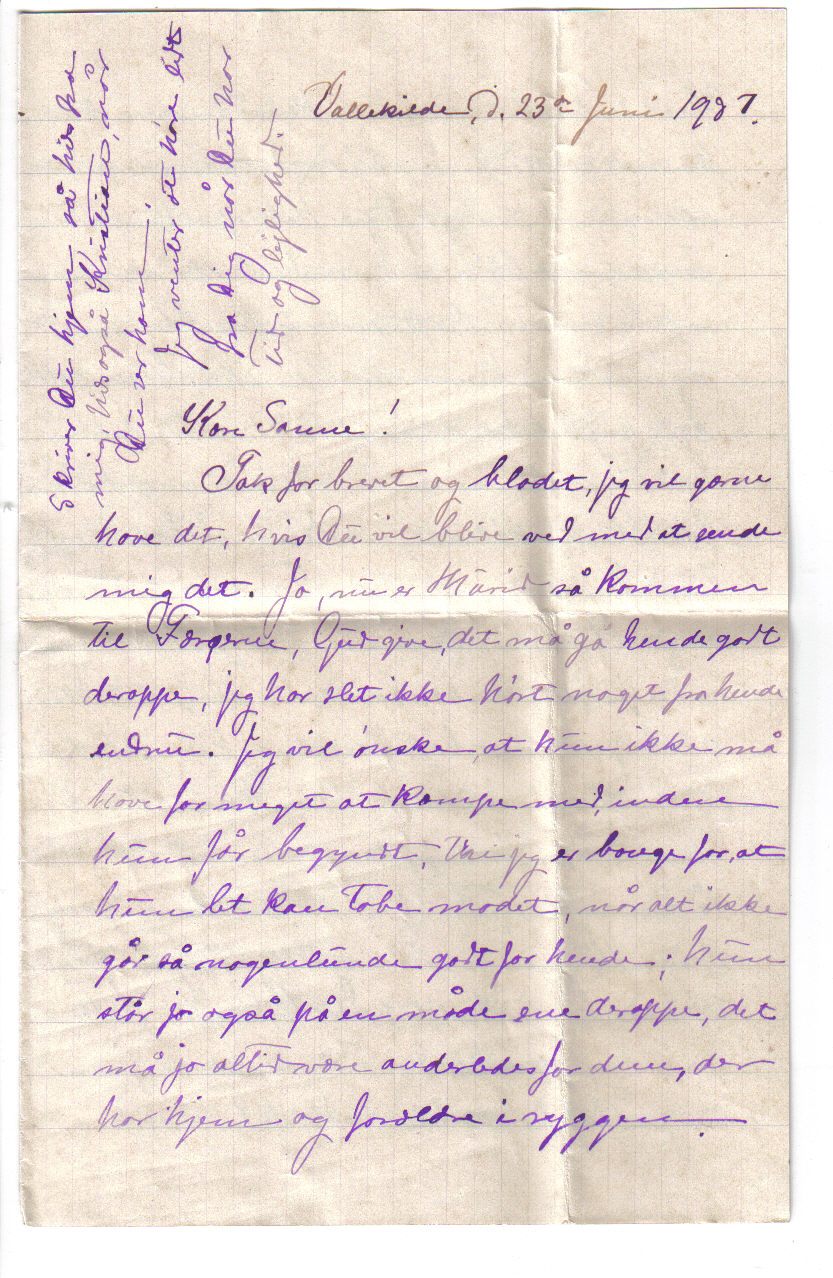 Vallekilde, d. 23de Juni 1907.
Kære Sanne!
Tak for brevet og bladet, jeg vil gærne
have det, hvis Du vil blive ved med at sende
mig det. Ja, nu er Maria så kommen
til Færøerne, Gud give, det må gå hende godt
deroppe, jeg har slet ikke hørt noget fra hende
endnu. Jeg vil ønske, at hun ikke må
have for meget at kæmpe med, inden
hun får begyndt, thi jeg er bange for, at
hun let kan tabe modet, når alt ikke
går så nogenlunde godt for hende; hun
står jo også på en måde ene deroppe, det
må jo altid være anderledes for dem, der
har hjem og forældre i ryggen.
Skriver Du hjem så hils fra
mig, hils også Kristian, når
Du ser ham!
Jeg venter at høre lidt
fra Dig når Du har
Tid og lejlighed.